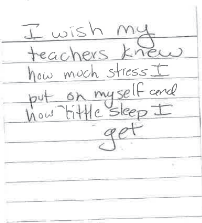 I wish my
teachers knew
how much stress I
put on myself and
how little sleep I
get